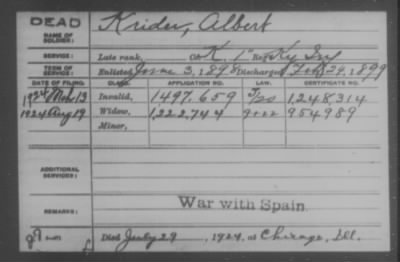 DEAD Krider, Albert
NAME OF SOLDIER:
SERVICE: Late rank, Co. K, 1" Reg. Ky Inf
TERM OF SERVICE: Enlisted June 3, 1898 Discharged Feb 24, 1899
DATE OF FILING. CLASS. APPLICATION NO. LAW. CERTIFICATE NO.
1924 Mch 13 Invalid, 1497,659 J/20 1,248,314
1924 Aug 19 Widow, 1,222,744 9+22 954989
Minor,
ADDITIONAL SERVICES:
War with Spain.
REMARKS:
Died July 29, 1924, at Chicago, Ill.